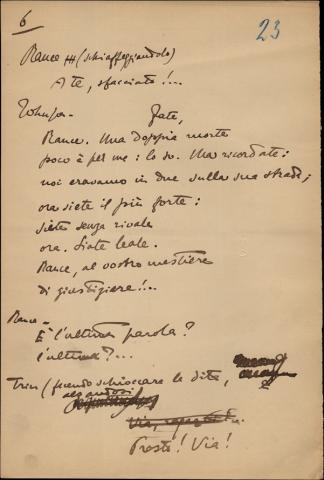 6
23
Rance (schiaffeggiandolo)
A te, sfacciato!...
Johnson - Fate,
Rance. Una doppia morte
poco è per me: lo so. Ma ricordate:
noi eravamo in due sulla sua strada;
ora siete il più forte:
siete senza rivale
ora. Siate leale.
Rance, al vostro mestiere
di giustiziere!...
Rance -
È l'ultima parola?
l'ultima?...
Trin (facendo schioccare le dita,
alzandosi
Via,
Presto! Via!